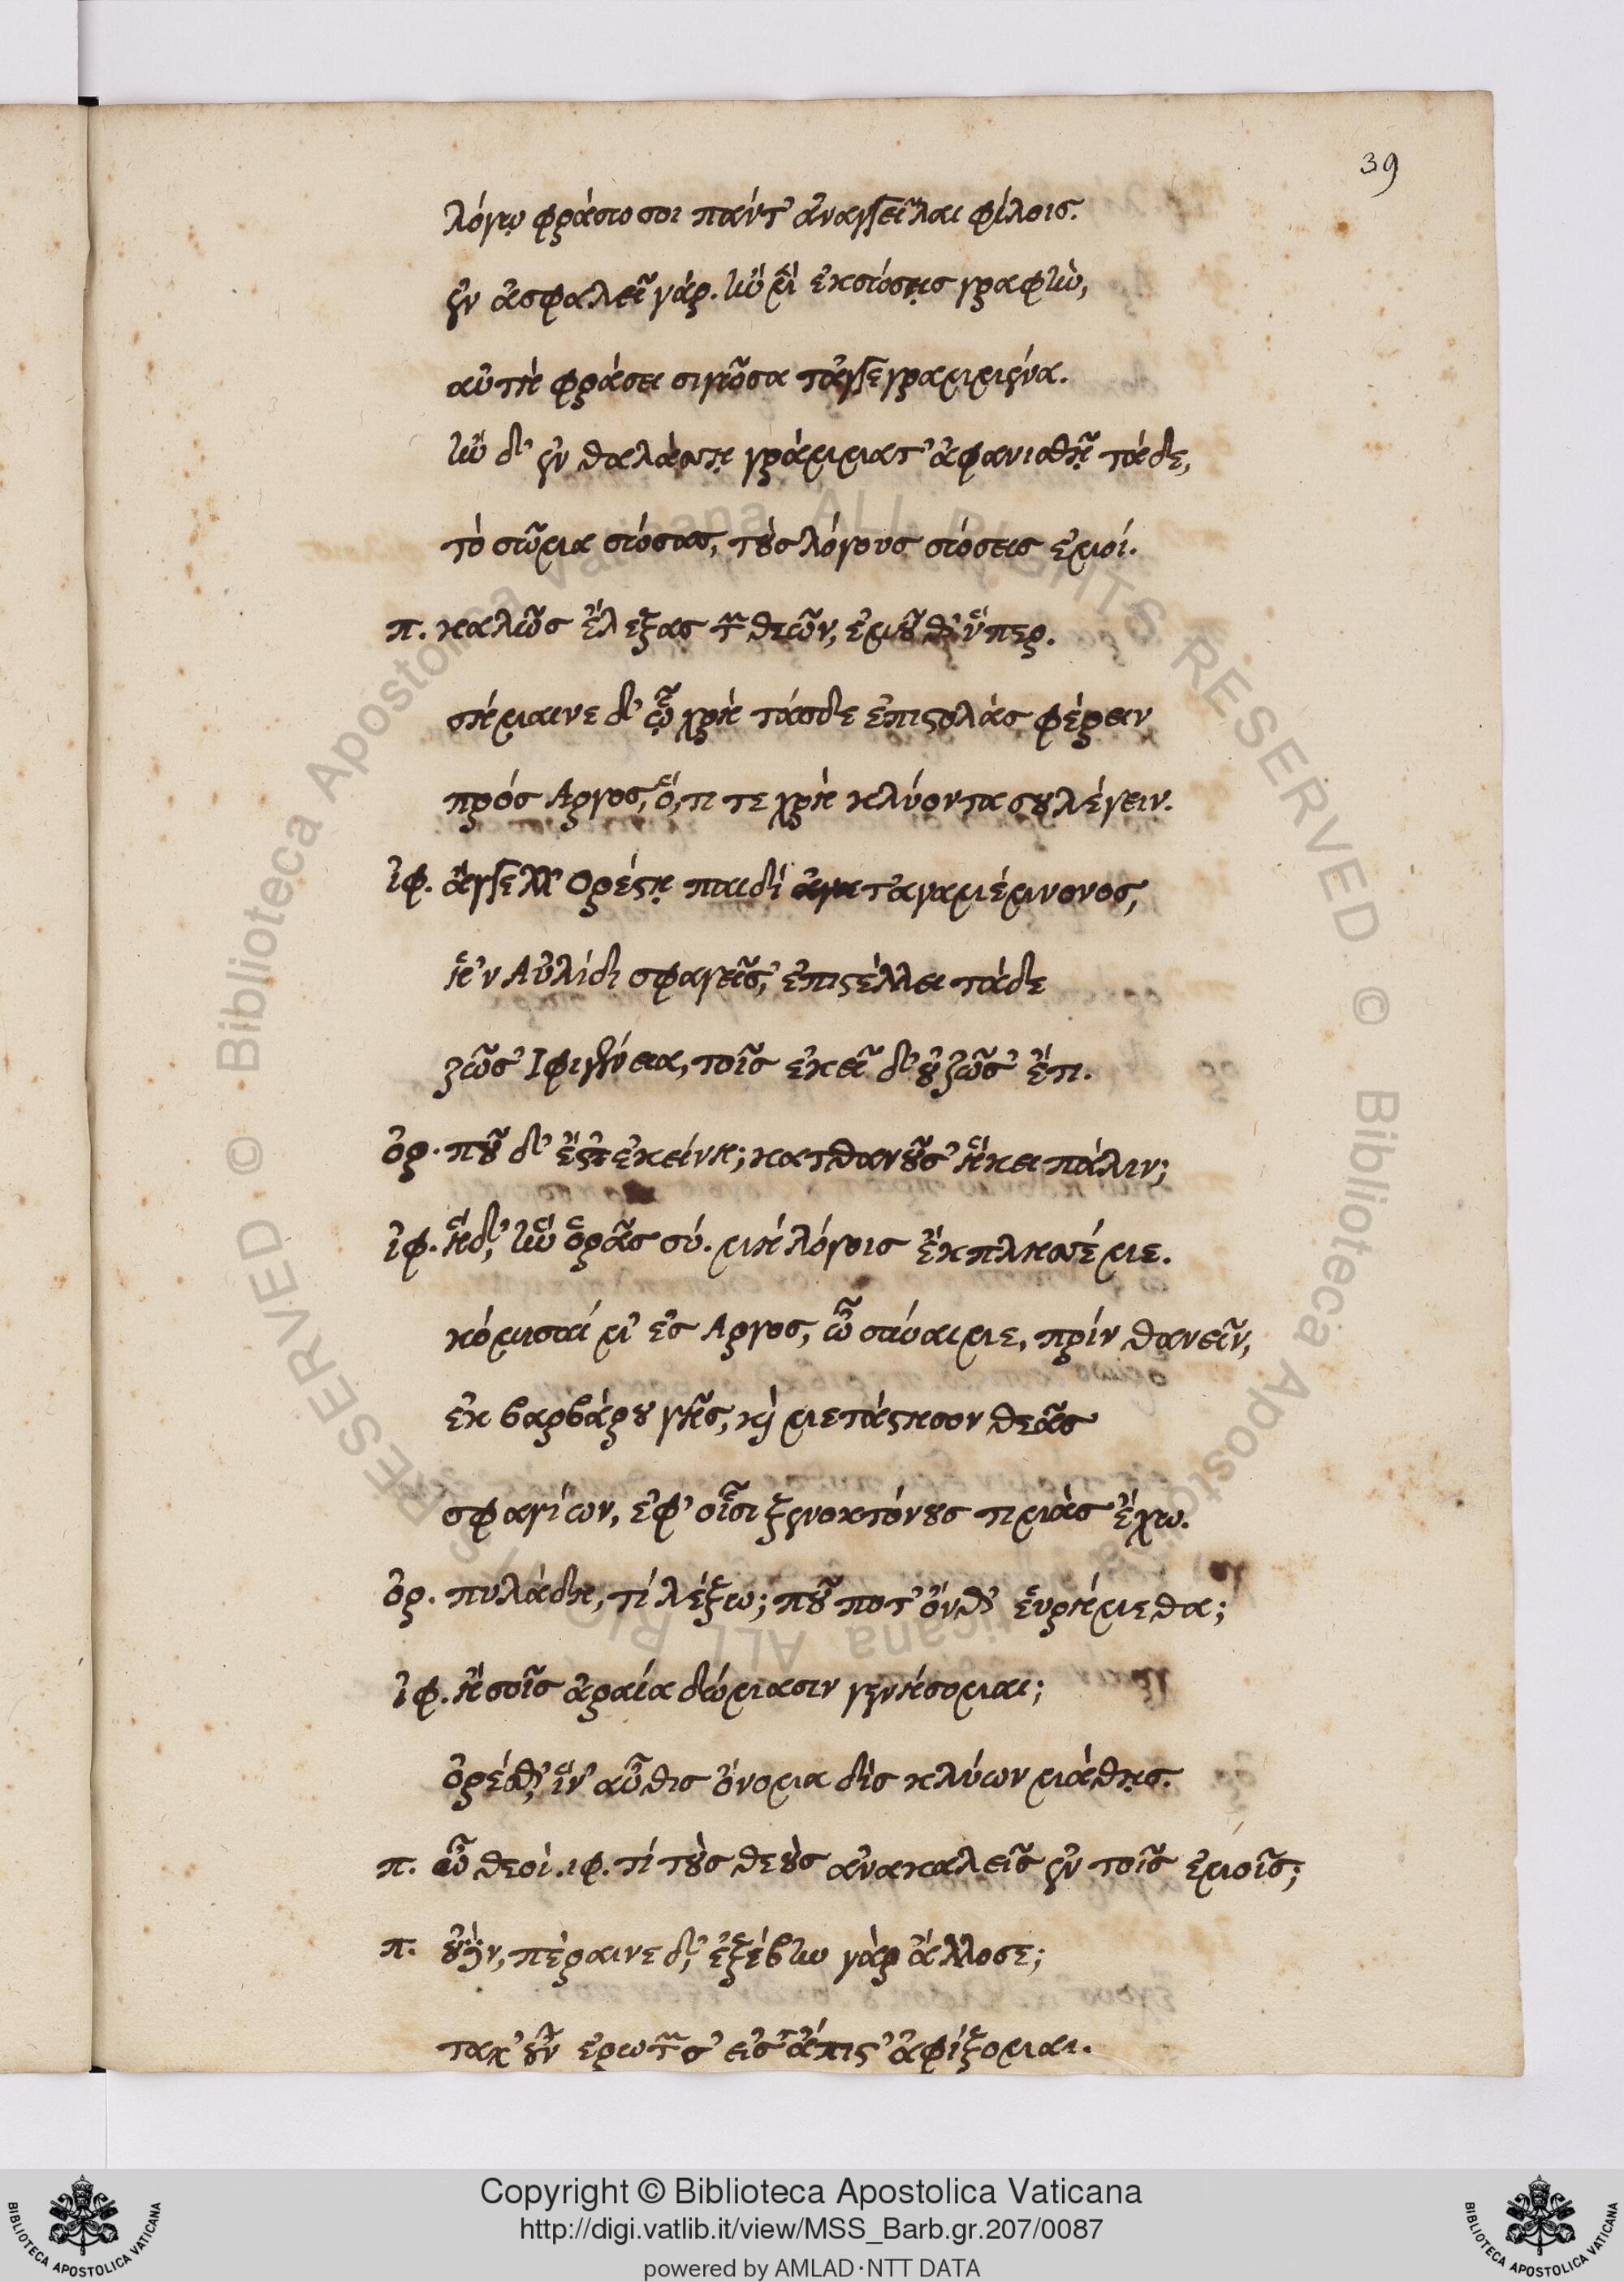 39
λόγῳ φράσω σοι πάντ' ἀναγγεῖλαι φίλοις.
ἐν ἀσφαλεῖ γάρ. ἢν μὲν ἐκσώσῃς γραφὴν,
αὐτὴ φράσει σιγῶσα τἀγγεγραμμένα.
ἢν δ' ἐν θαλάσσῃ γράμματ' ἀφανισθῇ τάδε,
τὸ σῶμα σώσας, τοὺς λόγους σώσεις ἐμοί.
π. καλῶς ἔλεξας τῶν θεῶν, ἐμοῦ θ' ὕπερ.
σήμαινε δ' ᾧ χρὴ τάσδε ἐπιστολὰς φέρειν
πρὸς Αργος, ὅ,τι τε χρὴ κλύοντα σοῦ λέγειν.
ἰφ. ἄγγελλ' Ορέστῃ παιδὶ τἀγαμέμνονος,
ἡ 'ν Αὐλίδι σφαγεῖσ' ἐπιστέλλει τάδε
ζῶσ' Ιφιγένεια, τοῖς ἐκεῖ δ' οὐ ζῶσ' ἔτι.
ὀρ. ποῦ δ' ἔστ' ἐκείνη; κατθανοῦσ' ἥκει πάλιν;
ἰφ. ἥδ', ἣν ὁρᾷς σύ. μὴ λόγοις ἔκπλησσέ με.
κόμισαί μ' ἐς Αργος, ὦ σύναιμε, πρὶν θανεῖν,
ἐκ βαρβάρου γῆς, καὶ μετάστησον θεᾶς
σφαγίων, ἐφ' οἷσι ξενοκτόνους τιμὰς ἔχω.
ὀρ. πυλάδη, τί λέξω; ποῦ ποτ' ὄνθ' εὑρήμεθα;
ἰφ. ἢ σοῖς ἀραία δώμασιν γενήσομαι;
ὀρέσθ', ἵν' αὖθις ὄνομα δὶς κλύων μάθῃς.
π. ὦ θεοί. ιφ. τί τοὺς θεοὺς ἀνακαλεῖς ἐν τοῖς ἐμοῖς;
π. οὐδέν, πέραινε δ', ἐξέβην γὰρ ἄλλοσε;
ταχ' οὖν ἐρωτῶν σ' εἰς ἄπιστ' ἀφίξομαι.
Copyright © Biblioteca Apostolica Vaticana
http://digi.vatlib.it/view/MSS_Barb.gr.207/0087
powered by AMLAD·NTT DATA